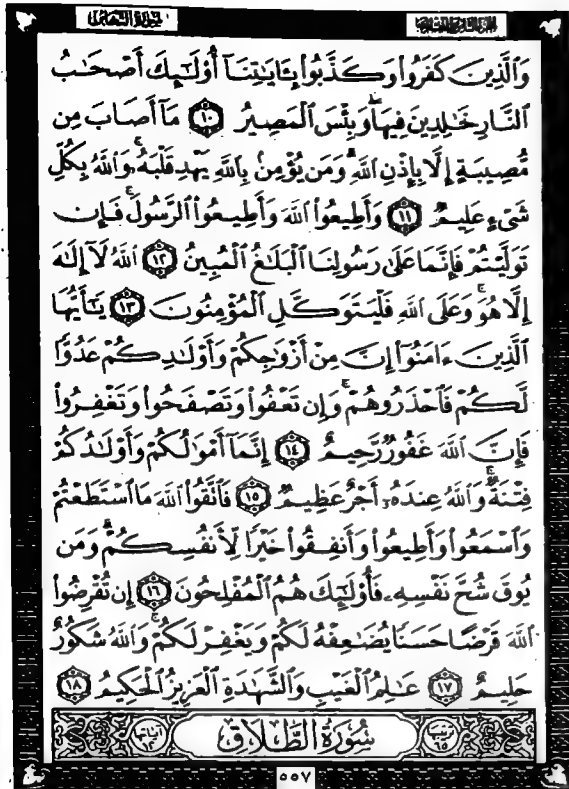 سُورَةُ التَّغَابُنِ
وَٱلَّذِينَ كَفَرُوا۟ وَكَذَّبُوا۟ بِـَٔايَـٰتِنَآ أُو۟لَـٰٓئِكَ أَصْحَـٰبُ
ٱلنَّارِ خَـٰلِدِينَ فِيهَا ۖ وَبِئْسَ ٱلْمَصِيرُ ١٠ مَآ أَصَابَ مِن
مُّصِيبَةٍ إِلَّا بِإِذْنِ ٱللَّهِ ۗ وَمَن يُؤْمِنۢ بِٱللَّهِ يَهْدِ قَلْبَهُۥ ۚ وَٱللَّهُ بِكُلِّ
شَىْءٍ عَلِيمٌ ١١ وَأَطِيعُوا۟ ٱللَّهَ وَأَطِيعُوا۟ ٱلرَّسُولَ ۚ فَإِن
تَوَلَّيْتُمْ فَإِنَّمَا عَلَىٰ رَسُولِنَا ٱلْبَلَـٰغُ ٱلْمُبِينُ ١٢ ٱللَّهُ لَآ إِلَـٰهَ
إِلَّا هُوَ ۚ وَعَلَى ٱللَّهِ فَلْيَتَوَكَّلِ ٱلْمُؤْمِنُونَ ١٣ يَـٰٓأَيُّهَا
ٱلَّذِينَ ءَامَنُوٓا۟ إِنَّ مِنْ أَزْوَٰجِكُمْ وَأَوْلَـٰدِكُمْ عَدُوًّا
لَّكُمْ فَٱحْذَرُوهُمْ ۚ وَإِن تَعْفُوا۟ وَتَصْفَحُوا۟ وَتَغْفِرُوا۟
فَإِنَّ ٱللَّهَ غَفُورٌ رَّحِيمٌ ١٤ إِنَّمَآ أَمْوَٰلُكُمْ وَأَوْلَـٰدُكُمْ
فِتْنَةٌ ۚ وَٱللَّهُ عِندَهُۥٓ أَجْرٌ عَظِيمٌ ١٥ فَٱتَّقُوا۟ ٱللَّهَ مَا ٱسْتَطَعْتُمْ
وَٱسْمَعُوا۟ وَأَطِيعُوا۟ وَأَنفِقُوا۟ خَيْرًا لِّأَنفُسِكُمْ ۗ وَمَن
يُوقَ شُحَّ نَفْسِهِۦ فَأُو۟لَـٰٓئِكَ هُمُ ٱلْمُفْلِحُونَ ١٦ إِن تُقْرِضُوا۟
ٱللَّهَ قَرْضًا حَسَنًا يُضَـٰعِفْهُ لَكُمْ وَيَغْفِرْ لَكُمْ ۚ وَٱللَّهُ شَكُورٌ
حَلِيمٌ ١٧ عَـٰلِمُ ٱلْغَيْبِ وَٱلشَّهَـٰدَةِ ٱلْعَزِيزُ ٱلْحَكِيمُ ١٨
ترتيبها ٦٥ سُورَةُ الطَّلَاقِ آياتها ١٢
٥٥٧